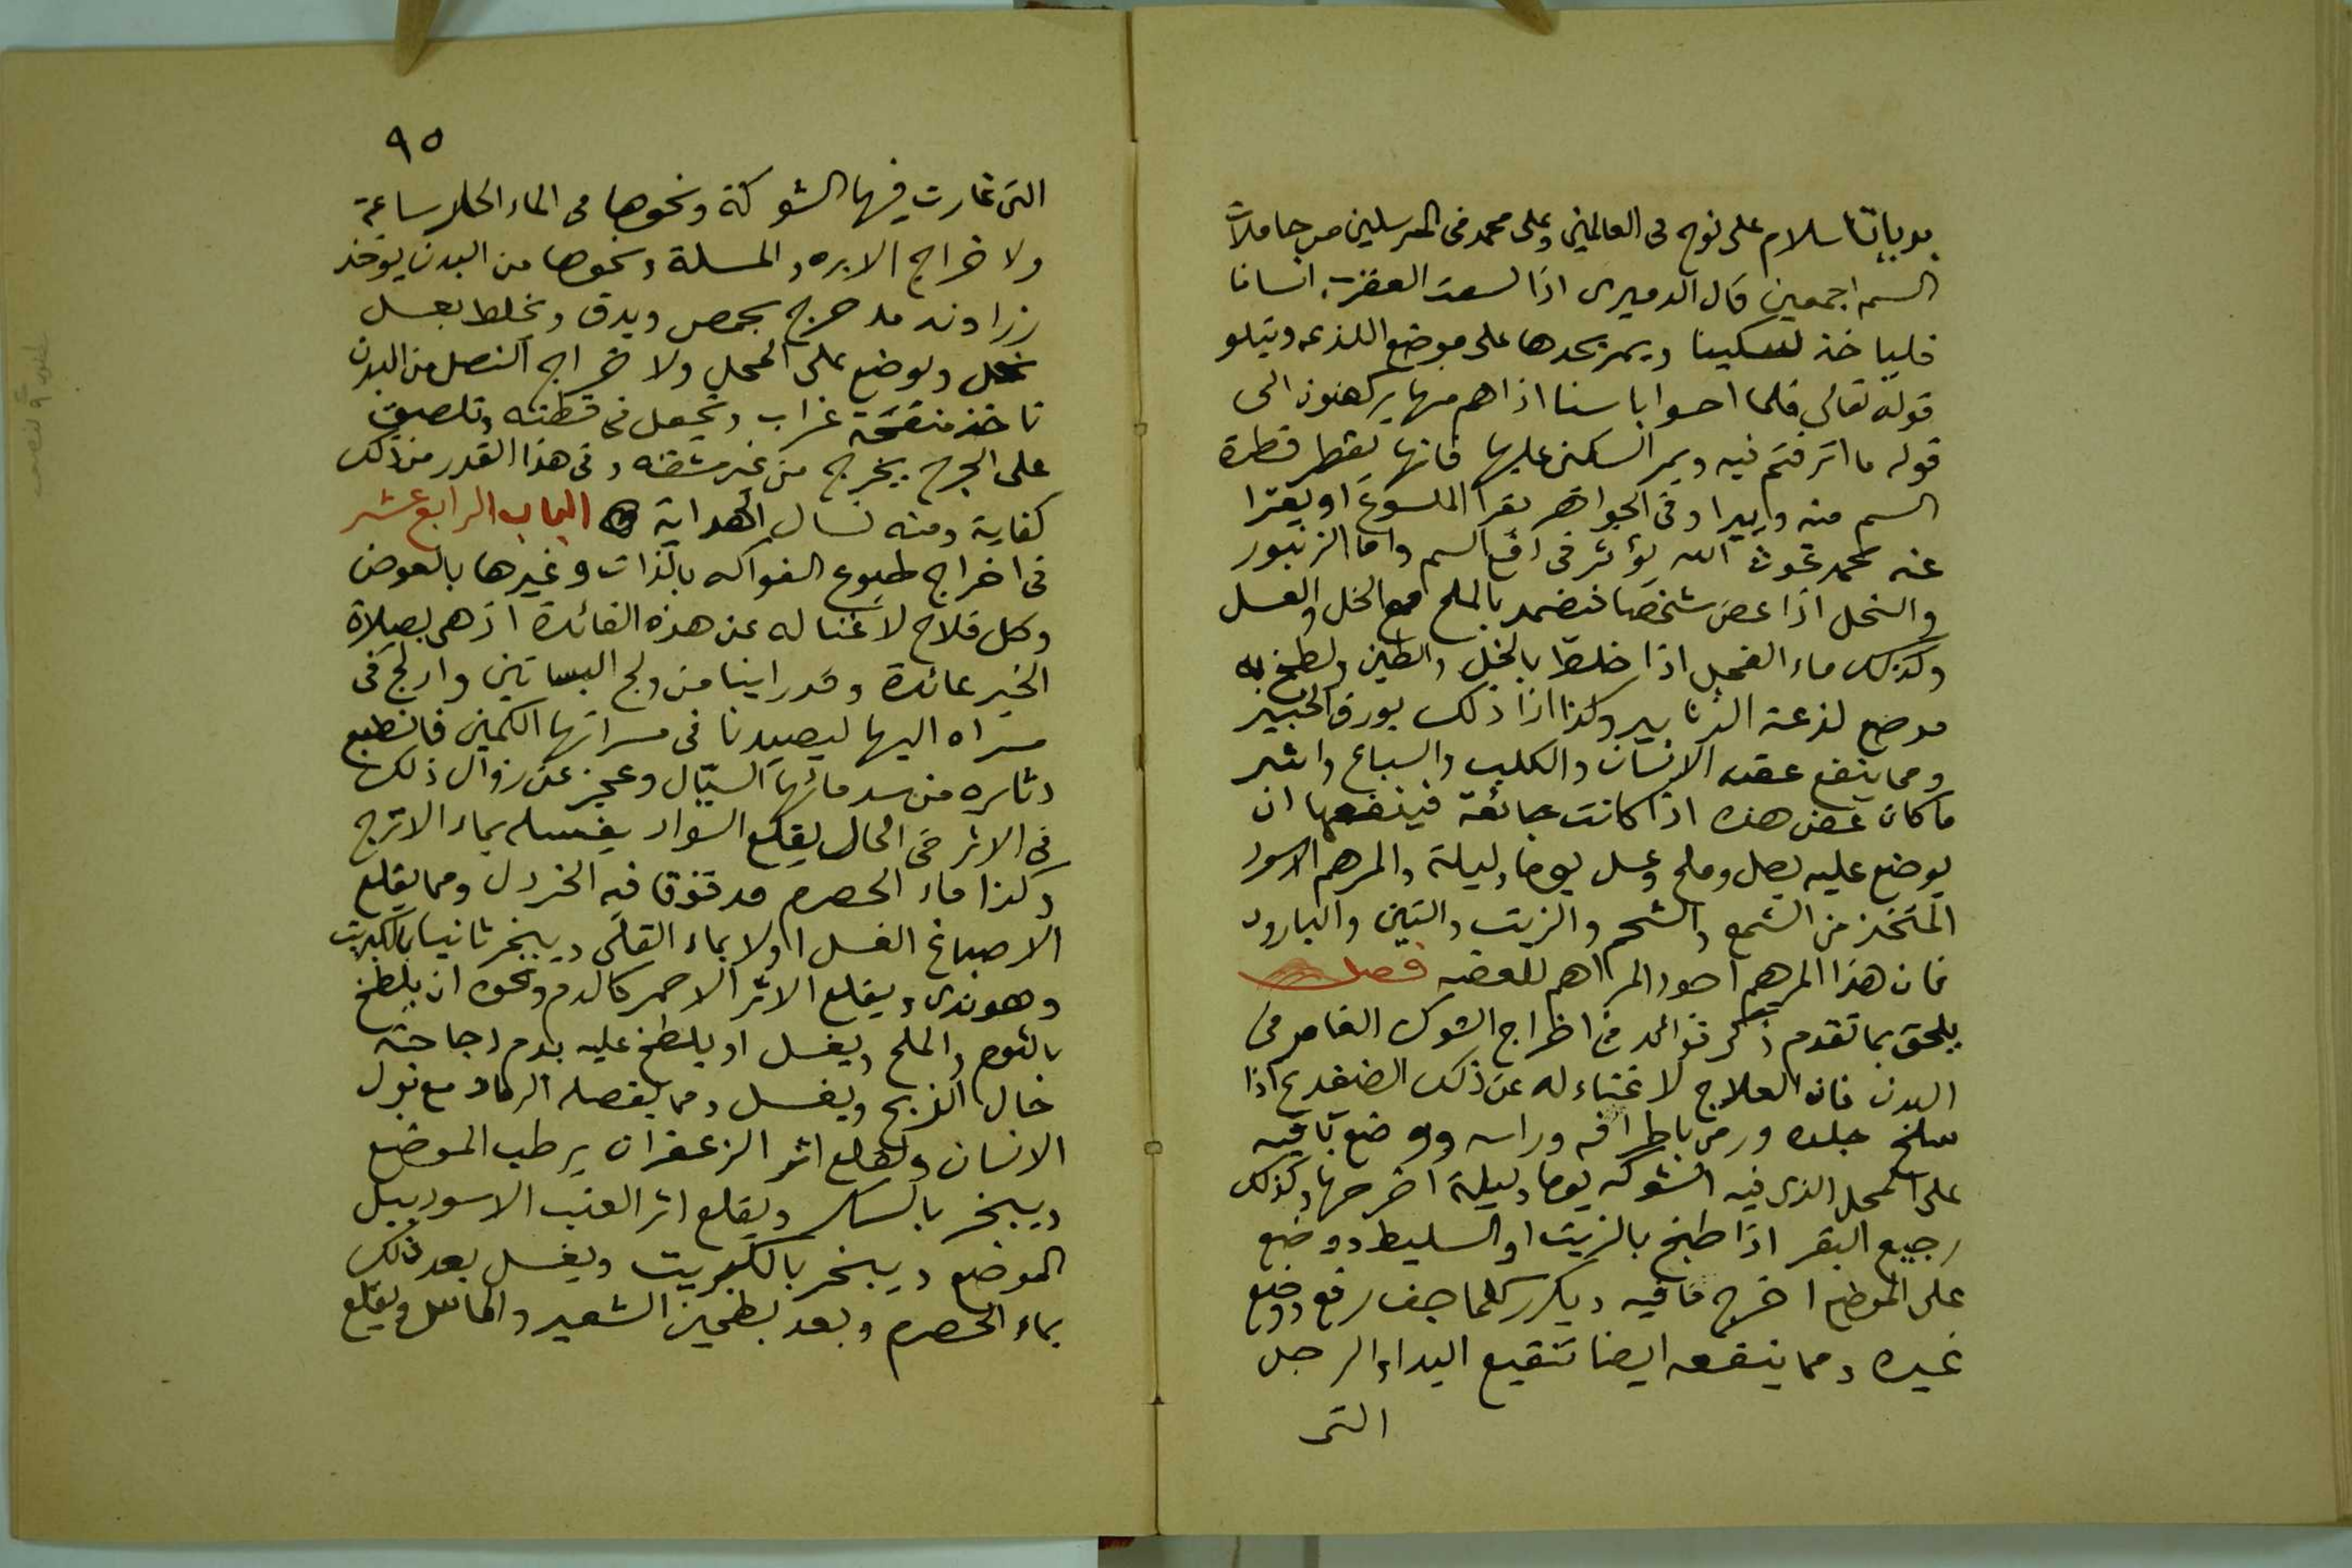 سلام على نوح فى العالمين وعلى محمد فى المرسلين من حاملات
السم اجمعين قال الدميرى اذا لسعت العقرب انسانا
فلياخذ سكينا ويمر بحدها على موضع اللذعه ويتلو
قوله تعالى فلما احسوا باسنا اذا هم منها يركضون الى
قوله ما اترفتم فيه ويمر السكين عليها فانها تقطر قطرة
السم منه وفى الجواهر يقرا الملسوع او يقرا
عنه محمد غوث الله يؤثر فى السم واما الزنبور
والنحل اذا عض شخصا فيضمد بالملح مع الخل والعسل
وكذلك ماء الفجل اذا خلط بالخل والطين ولطخ به
موضع لذعة الزنابير وكذا اذا دلك بورق الخبيز
ومما ينفع عضه الانسان والكلب والسباع واشر
ما كان عض هذه اذا كانت جائعة فينفعها ان
يوضع عليه بصل وملح وعسل يوما وليلة والمرهم الاسود
المتخذ من الشمع والشحم والزيت والتين والبارود
فان هذا المرهم اجود المراهم للعضه فصل
يلحق بما تقدم ذكر فوائد فى اخراج الشوك الغامر فى
البدن فان العلاج لا غناء له عن ذلك الضفدع اذا
سلخ جلده ورمى باطرافه وراسه ووضع باقيه
على المحل الذى فيه الشوكه يوما وليلة اخرجها وكذلك
رجيع البقر اذا طبخ بالزيت او السليط ووضع
على الموضع اخرج ما فيه ويكرر كلما جف رفع ووضع
غيره ومما ينفعه ايضا تنقيع اليد او الرجل
التى
٩٥
التى غارت فيها الشوكة ونحوها فى الماء الحار ساعة
ولاخراج الابره والمسلة ونحوها من البدن يوخذ
زراوند مدحرج يحمص ويدق ويخلط بعسل
نحل ويوضع على المحل ولاخراج النصل من البدن
تاخذ منقحة غراب وتجعل فى قطنه وتلصق
على الجرح يخرج من غير مشقه وفى هذا القدر من ذلك
كفاية ومنه نسال الهداية الباب الرابع عشر
فى اخراج طبوع الفواكه بالذات وغيرها بالعرض
وكل فلاح لا غنا له عن هذه الفائدة اذ هى بصلاة
الخير عائدة وقد راينا من ولج البساتين وادلج فى
مسراه اليها ليصيد نا فى مسراتها الكمين فانطبع
دثاره من مائها السيال وعجز عن زوال ذلك
فى الاثر فى الحال يقلع السواد يغسله بماء الاترج
وكذا ماء الحصرم مدقوقا فيه الخردل ومما يقلع
الاصباغ الغسل اولا بماء القلى ويبخر ثانيا بالكبريت
وهو ندى ويقلع الاثر الاحمر كالدم ونحوه ان يلطخ
بالثوم والملح ويغسل او يلطخ عليه بدم دجاجة
حال الذبح ويغسل ومما يفصله الرماد مع بول
الانسان ولقلع اثر الزعفران يرطب الموضع
ويبخر بالسكر ويقلع اثر العنب الاسود ببل
الموضع ويبخر بالكبريت ويغسل بعد ذلك
بماء الحصرم وبعد بطحين الشعير والماش ويقلع